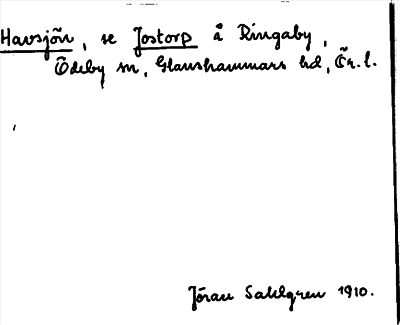 Havsjön, se Jostorp å Ringaby,
Ödeby sn, Glanshammars hd, Ör. l.
Jöran Sahlgren 1910.